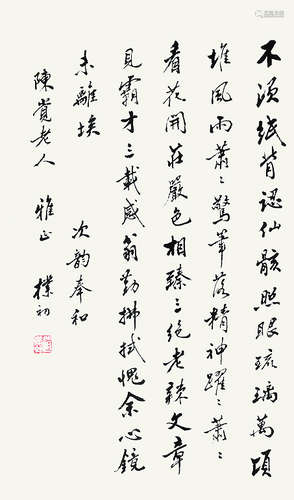 不須紙背認仙骸照眼琉璃萬頃
堆風雨蕭〻驚筆落精神躍〻蕭〻
看花開莊嚴色相臻三絕老辣文章
見霸才三載感翁勤拂拭愧余心鏡
未離埃 次韵奉和
陳覺老人 雅正 樸初